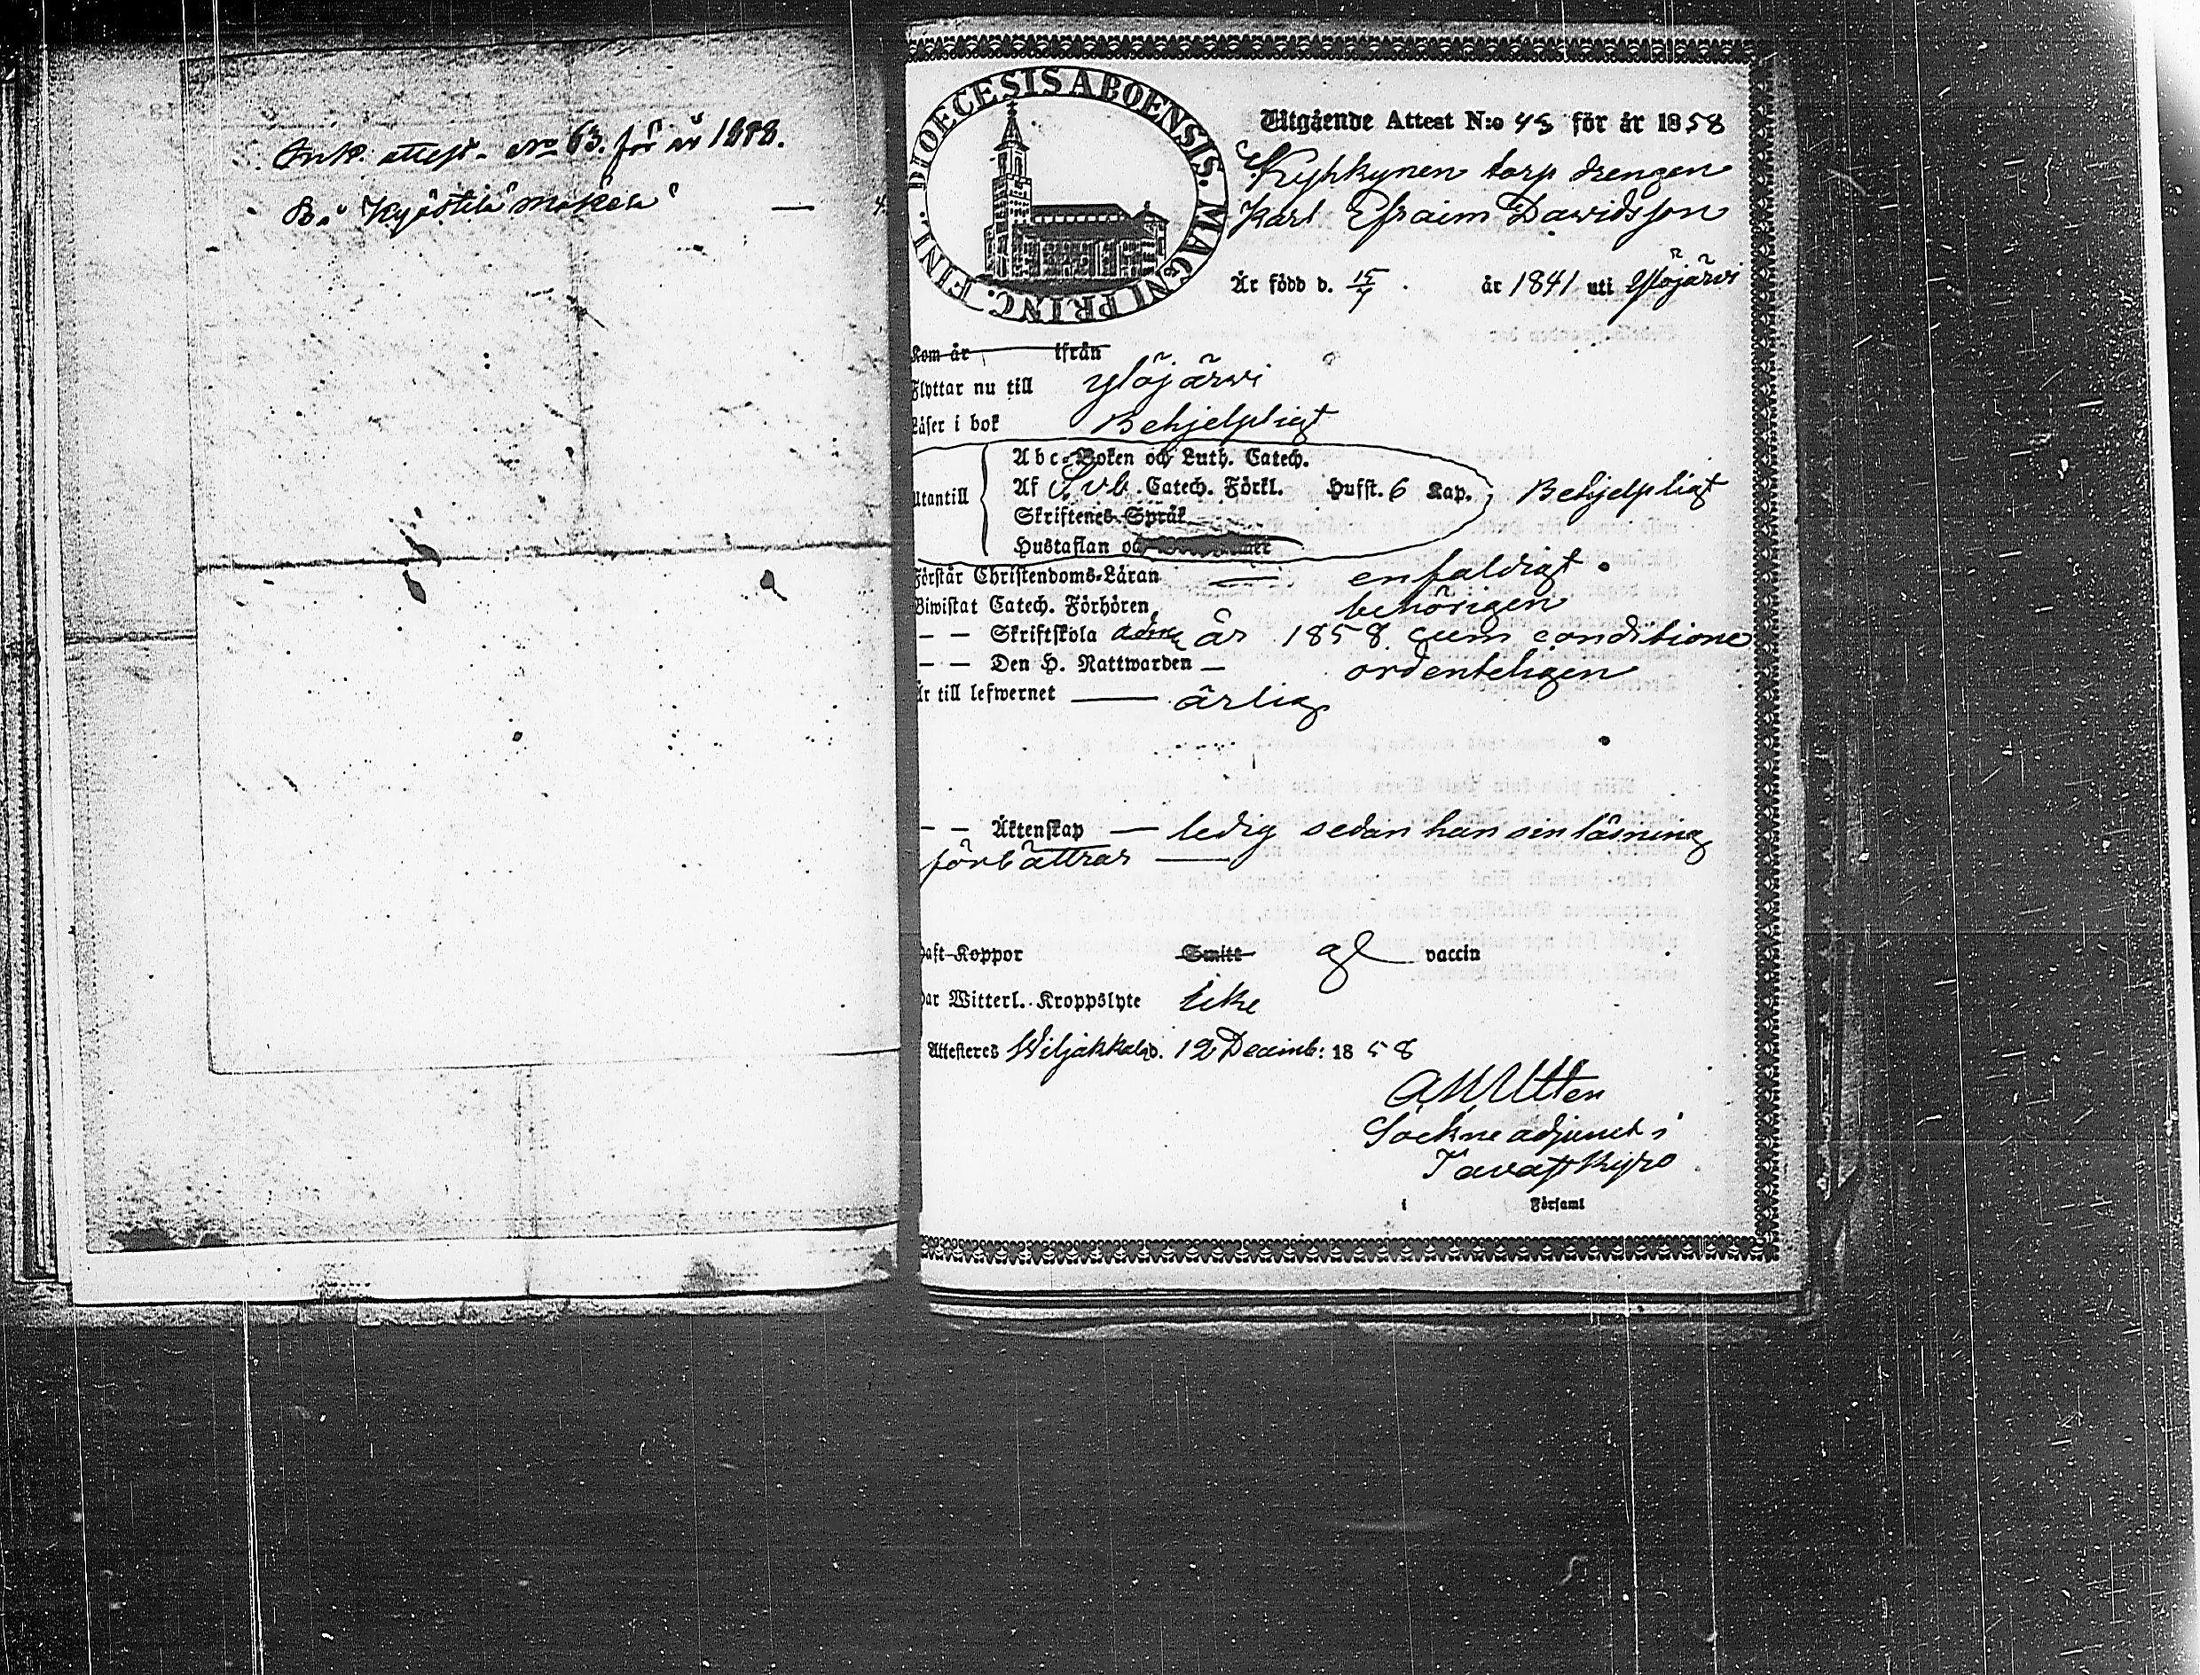 Ink. attest. No 63. för år 1858.
DIOECESIS ABOENSIS. MAGNI PRINC. FINL.
Utgående Attest N:o 43 för år 1858
Kyhkynen torp drengen
Karl Efraim Dawidsson
Är född d. 15/7 år 1841 uti Ylöjärvi
Kom år ifrån
Flyttar nu till Ylöjärvi
Läser i bok Behjelpligt
Utantill
Abc-Boken och Luth. Catech.
Af Svb. Catech. Förkl. Hufst. 6 Kap. Behjelpligt
Skriftenes Språk
Hustaflan och
Förstår Christendoms-Läran — enfaldigt
Biwistat Catech. Förhören behörigen
— — Skriftskola år 1858 cum conditione
— — Den H. Nattwarden — ordenteligen
Är till lefwernet — ärlig
— — Äktenskap — ledig sedan han sin läsning
förbättrar —
Haft Koppor Smitt vaccin
Har Witterl. Kroppslyte icke
Attesteres Wiljakkala d. 12 Decemb: 1858
Sockne adjunct i
Tavastkyro
i Församl